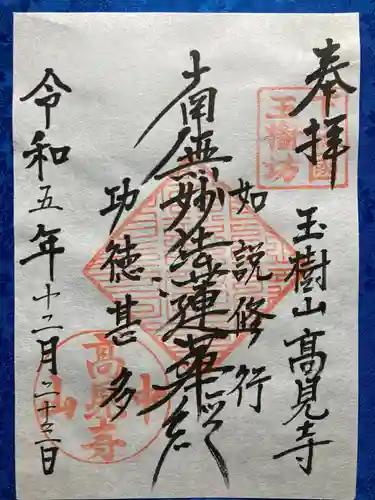 奉拝
玉樹山 高見寺
如説修行
南無妙法蓮華経
功徳甚多
令和五年十二月二十三日
高見寺